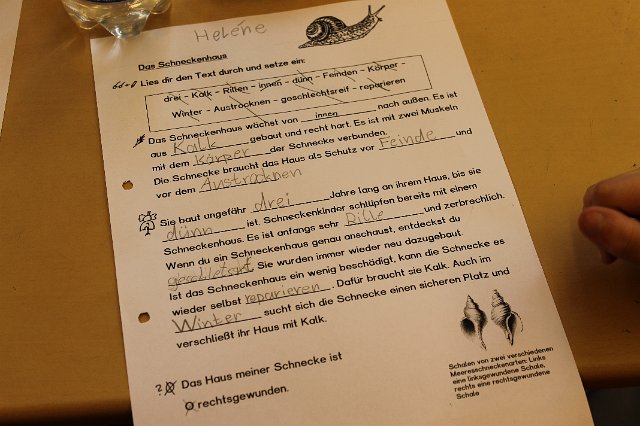 Heléne
Das Schneckenhaus
Lies dir den Text durch und setze ein:
drei - Kalk - Rillen - innen - dünn - Feinden - Körper -
Winter - Austrocknen - geschlechtsreif - reparieren
Das Schneckenhaus wächst von innen nach außen. Es ist
aus Kalk gebaut und recht hart. Es ist mit zwei Muskeln
mit dem Körper der Schnecke verbunden.
Die Schnecke braucht das Haus als Schutz vor Feinde und
vor dem Austrocknen
Sie baut ungefähr drei Jahre lang an ihrem Haus, bis sie
dünn ist. Schneckenkinder schlüpfen bereits mit einem
Schneckenhaus. Es ist anfangs sehr Rille und zerbrechlich.
Wenn du ein Schneckenhaus genau anschaust, entdeckst du
Sie wurden immer wieder neu dazugebaut.
Ist das Schneckenhaus ein wenig beschädigt, kann die Schnecke es
wieder selbst reparieren. Dafür braucht sie Kalk. Auch im
Winter sucht sich die Schnecke einen sicheren Platz und
verschließt ihr Haus mit Kalk.
? Das Haus meiner Schnecke ist
rechtsgewunden.
Schalen von zwei verschiedenen
Meeresschneckenarten: Links
eine linksgewundene Schale,
rechts eine rechtsgewundene
Schale